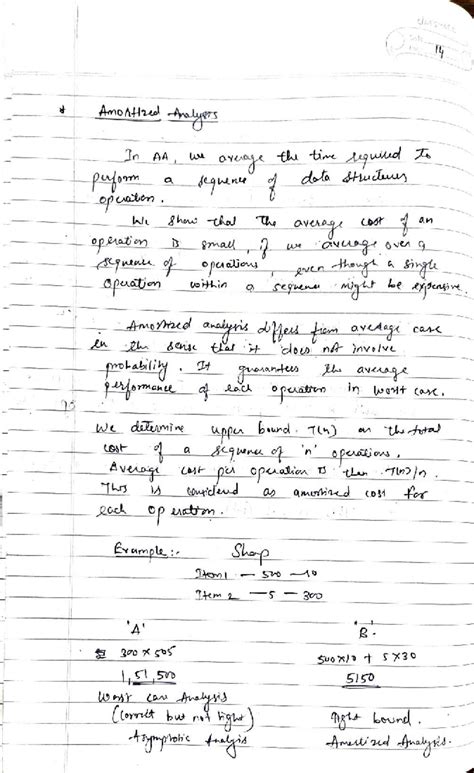 classmate
Date
Page
14
* Amortized Analysis
In AA, we average the time required to
perform a sequence of data structures
operation.
We show that the average cost of an
operation is small, if we average over a
sequence of operations, even though a single
operation within a sequence might be expensive.
Amortized analysis differs from average case
in the sense that it does not involve
probability. It guarantees the average
performance of each operation in worst case.
We determine upper bound T(n) on the total
cost of a sequence of 'n' operations.
Average cost per operation is then T(n)/n.
This is considered as amortized cost for
each operation.
Example:- Shop
Item 1 — 500 — 10
Item 2 — 5 — 300
'A' 'B'
300 x 505 500x10 + 5x30
1,51,500 5150
Worst case Analysis
(correct but not tight) Tight bound.
Asymptotic Analysis Amortized Analysis.